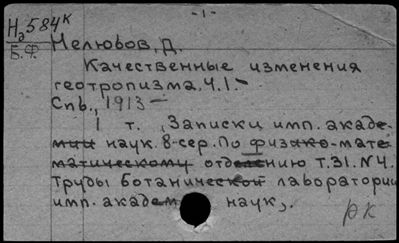 -1-
На 584к
Б.Ф.
Нелюбов, Д.
Качественные изменения
геотропизма, Ч.1.-
Спб., 1913-
1 т. „Записки имп. акаде-
мии наук. 8 сер. По физико-мате-
матическому отделению т.31. N4.
Труды ботанической лаборатории
имп. академ наук„.
рк